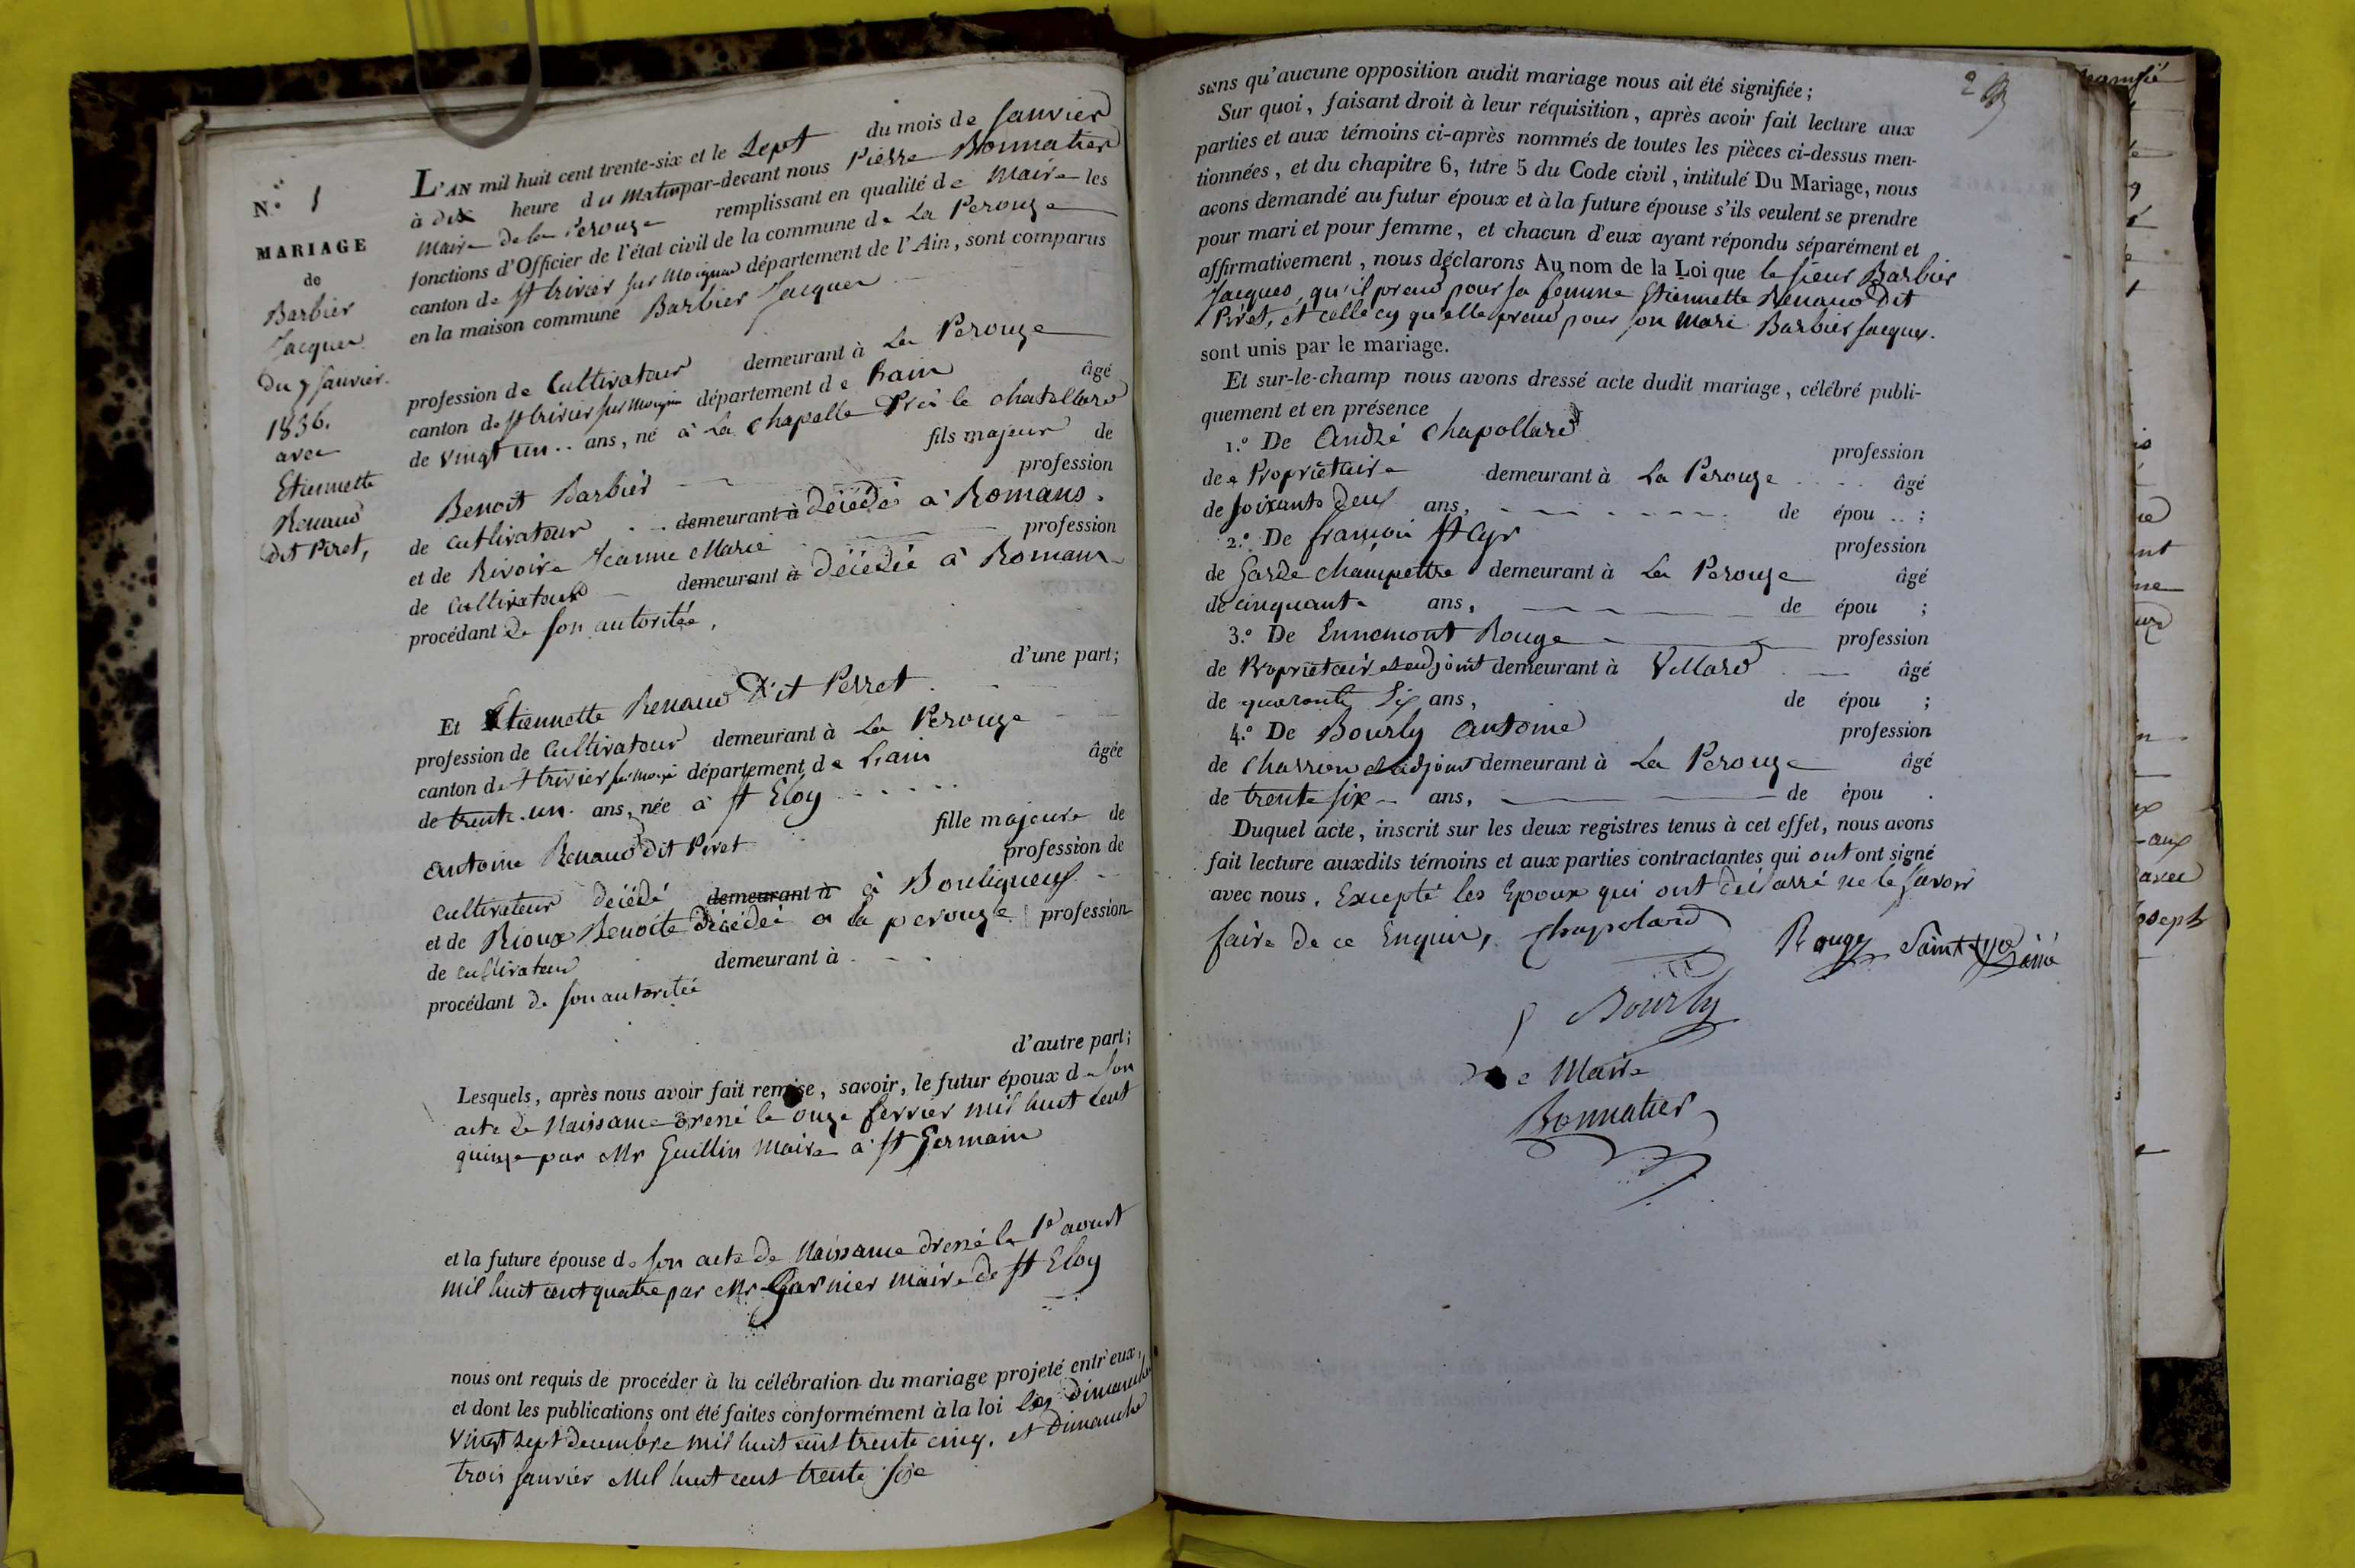 N.° 1
MARIAGE
de
Barbier
Jacques
Du 7 Janvier
1836.
avec
Etiennette
Renaud
Dit Piret,
L'AN mil huit cent trente-six et le Sept du mois de Janvier
à dix heure du Matin par-devant nous Pierre Bonnatier
Maire de la Perouze remplissant en qualité de Maire les
fonctions d'Officier de l'état civil de la commune de La Perouze
canton de St trivier sur Moignan département de l'Ain, sont comparus
en la maison commune Barbier Jacques
profession de Cultivateur demeurant à La Perouze
canton de St trivier sur Moignan département de Lain âgé
de vingt un ans, né à La Chapelle Près le chatellard
fils majeur de
Benoit Barbier profession
de cultivateur demeurant à décédé à Romans.
et de Rivoire Jeanne Marie profession
de Cultivateur demeurant à décédée à Romans
procédant de son autoritée,
d'une part;
Et Etiennette Renaud Dit Perret
profession de Cultivateur demeurant à La Perouze
canton de St trivier sur Moign département de Lain âgée
de trente-un ans, née à St Eloy
fille majeure de
Antoine Renaud dit Piret profession de
Cultivateur décédé demeurant à à Bouligneux
et de Rioux Benoite décédée a la perouze profession
de cultivateur demeurant à
procédant de son autoritée
d'autre part;
Lesquels, après nous avoir fait remise, savoir, le futur époux de Son
acte de Naissance dressé le onze fevrier mil huit cent
quinze par Mr Guillin Maire à St Germain
et la future épouse de son acte de Naissance dressé le 1er aoust
mil huit cent quatre par Mr Garnier Maire de St Eloy
nous ont requis de procéder à la célébration du mariage projeté entr'eux,
et dont les publications ont été faites conformément à la loi les Dimanche
vingt sept decembre mil huit cent trente cinq, et Dimanche
trois Janvier Mil huit cent trente six
2
sans qu'aucune opposition audit mariage nous ait été signifiée;
Sur quoi, faisant droit à leur réquisition, après avoir fait lecture aux
parties et aux témoins ci-après nommés de toutes les pièces ci-dessus men-
tionnées, et du chapitre 6, titre 5 du Code civil, intitulé Du Mariage, nous
avons demandé au futur époux et à la future épouse s'ils veulent se prendre
pour mari et pour femme, et chacun d'eux ayant répondu séparément et
affirmativement, nous déclarons Au nom de la Loi que le sieur Barbier
Jacques, qu'il prend pour sa femme Etiennette Renaud Dit
Piret, et celle cy qu'elle prend pour son Mari Barbier Jacques.
sont unis par le mariage.
Et sur-le-champ nous avons dressé acte dudit mariage, célébré publi-
quement et en présence
1.° De André Chapollard profession
de Propriétaire demeurant à La Perouze âgé
de soixante deux ans, de épou ;
2.° De françois St Cyr profession
de Garde champettre demeurant à La Perouze âgé
de cinquante ans, de épou ;
3.° De Ennemont Rouge profession
de Propriétaire et adjoint demeurant à Villard âgé
de quarante Six ans, de épou ;
4.° De Bourly Antoine profession
de Charron et adjoint demeurant à La Perouze âgé
de trente six ans, de épou .
Duquel acte, inscrit sur les deux registres tenus à cet effet, nous avons
fait lecture auxdits témoins et aux parties contractantes qui ont ont signé
avec nous, Excepté les Epoux qui ont déclarré ne le savoir
faire de ce Enquis, Chapolard Rouge Saint Cyr
Bourly
Le Maire
Bonnatier